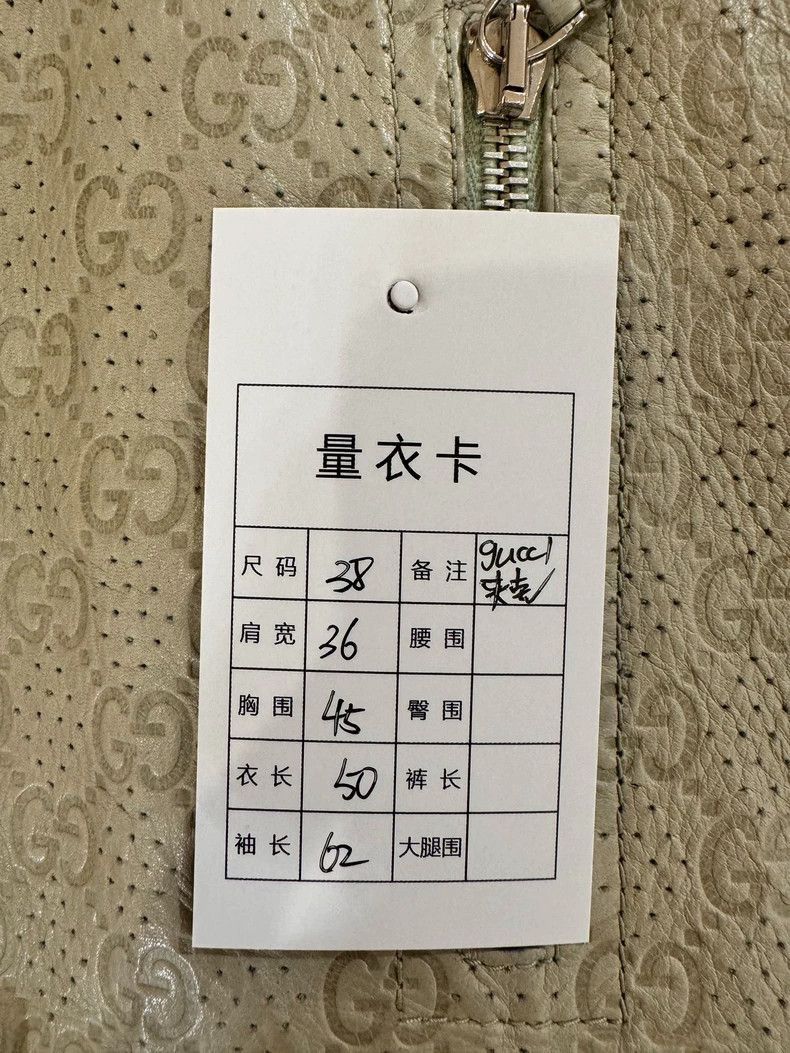 量衣卡
尺码 38 备注 gucci 夹克
肩宽 36 腰围
胸围 45 臀围
衣长 50 裤长
袖长 62 大腿围